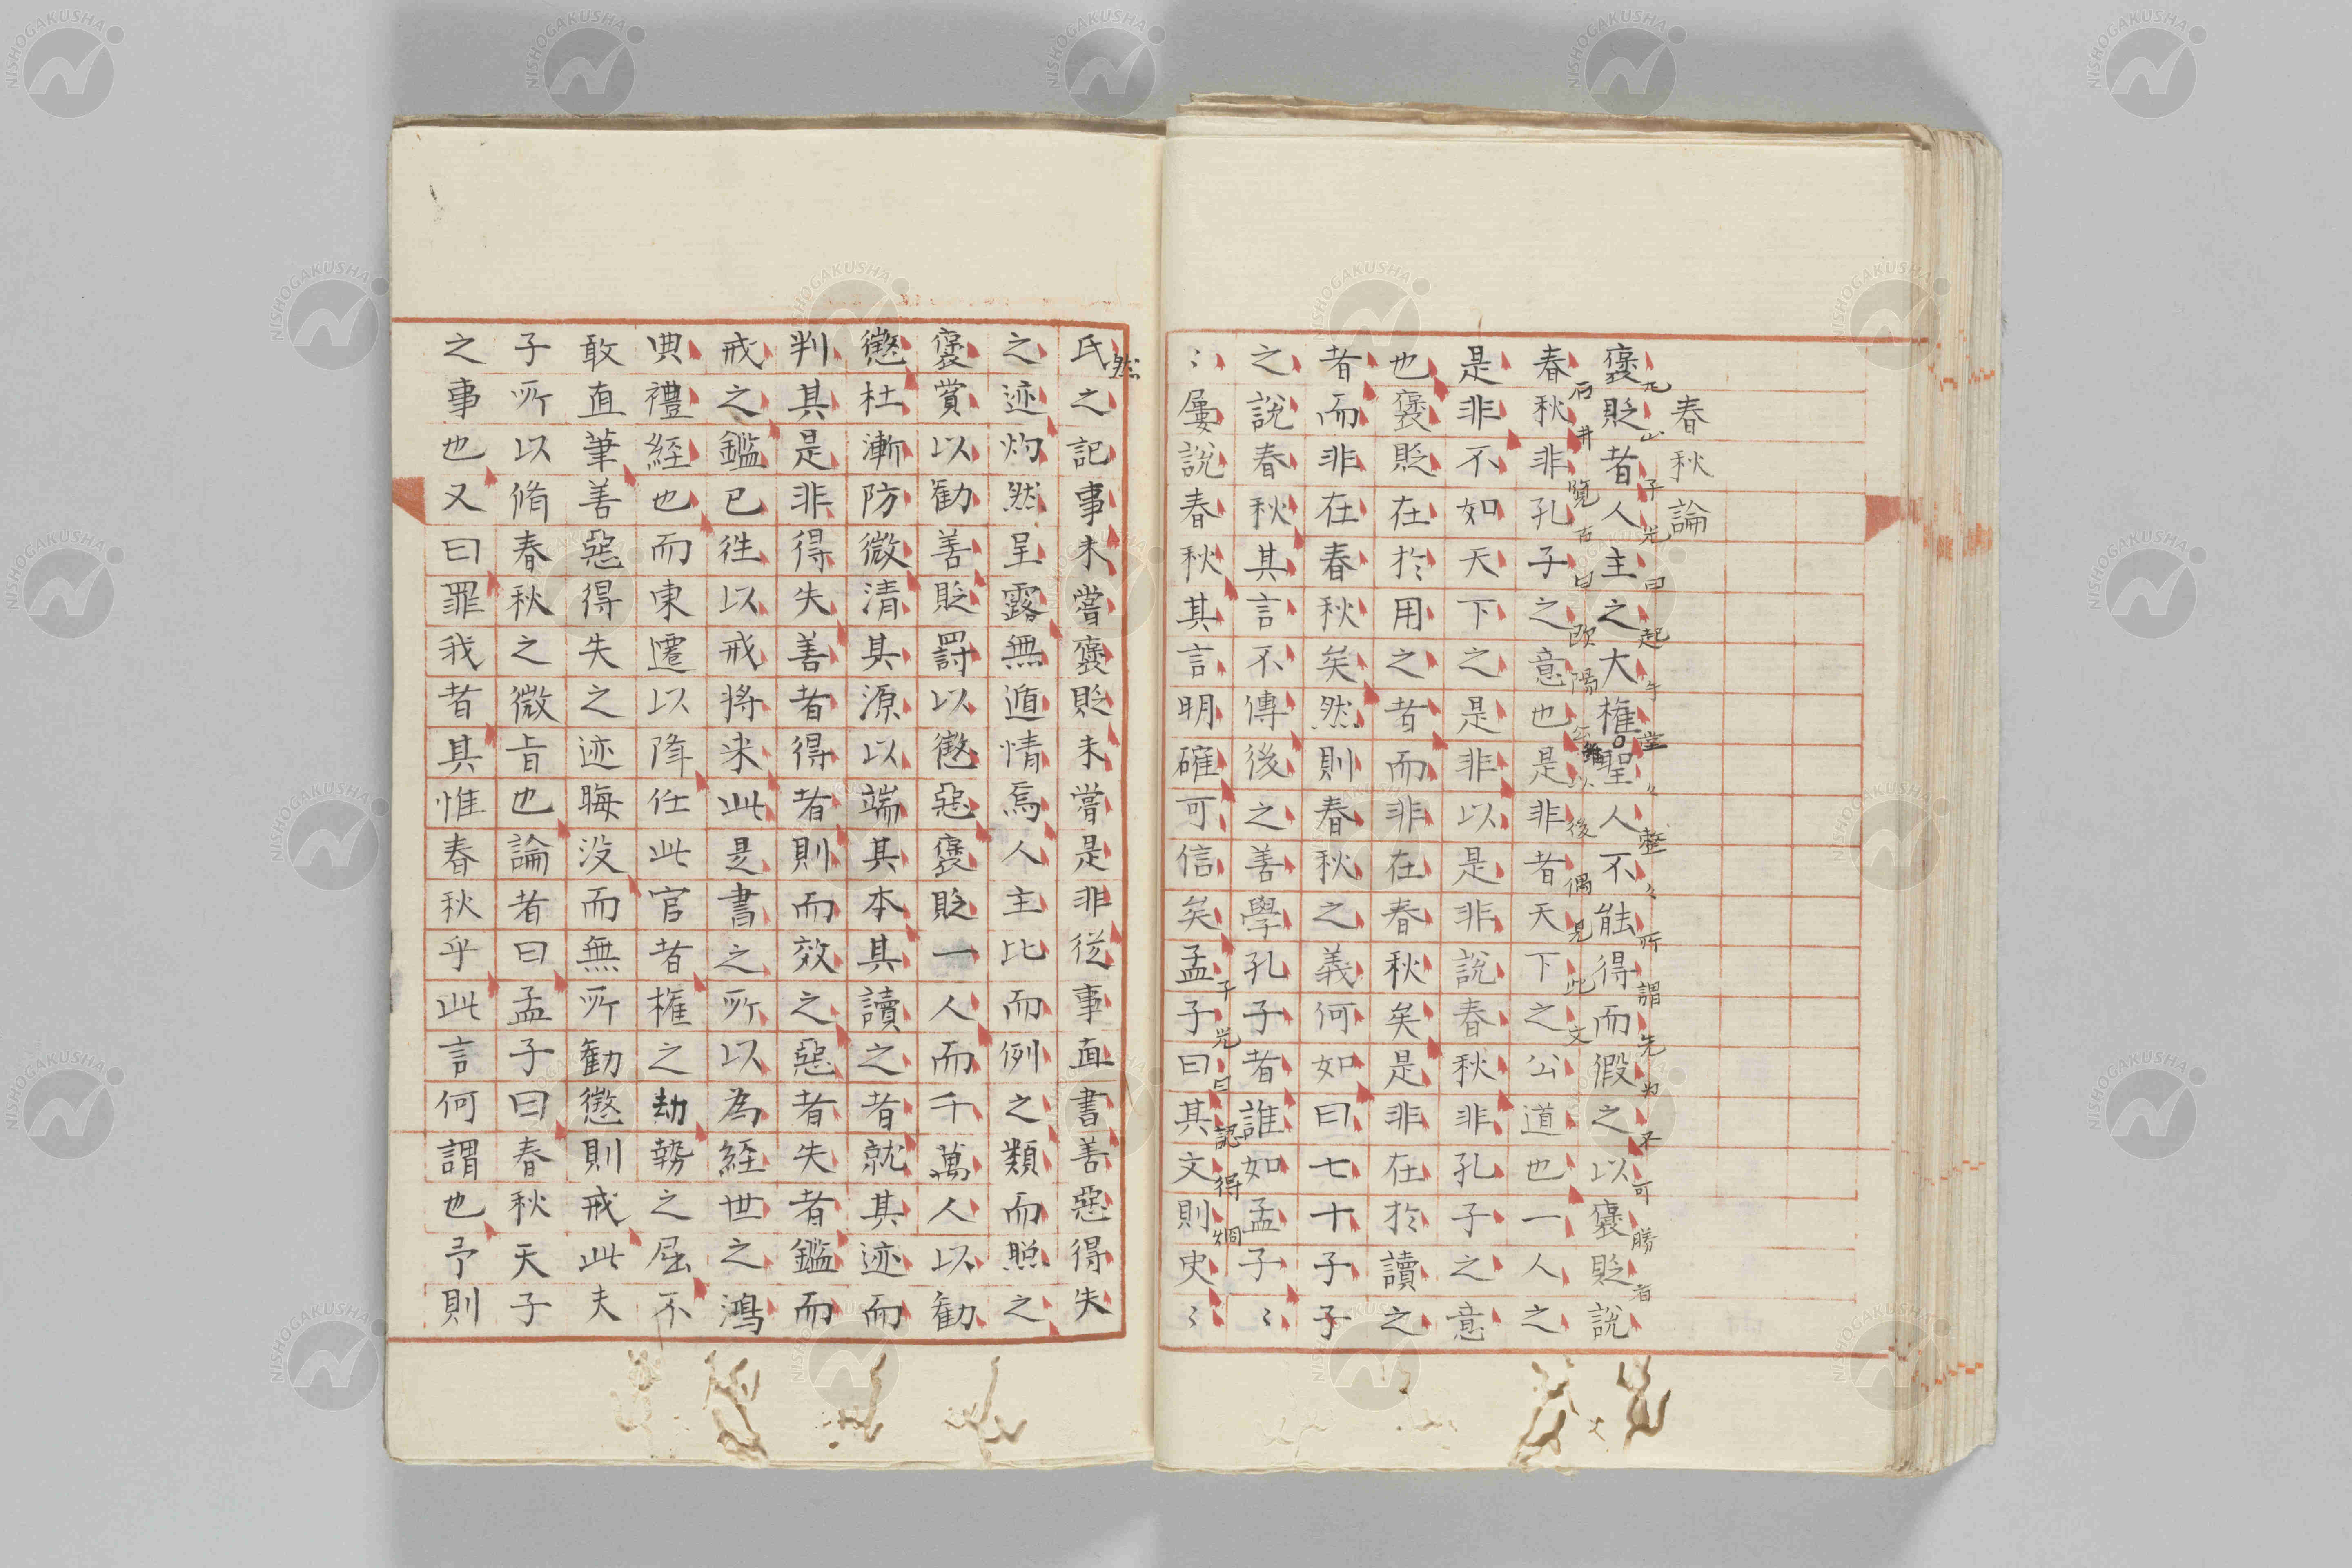 春秋論
褒貶者人主之大権聖人不能得而假之以褒貶說
九山子光曰起乎堂々整々所謂先為不可勝者
春秋非孔子之意也是非者天下之公道也一人之
石井覽古曰欧陽以後偶見此文
是非不如天下之是非以是非說春秋非孔子之意
也褒貶在於用之者而非在春秋矣是非在於讀之
者而非在春秋矣然則春秋之義何如曰七十子子
之說春秋其言不傳後之善學孔子者誰如孟子〻
〻屢說春秋其言明確可信矣孟子曰其文則史〻
子光曰認得烱
然
氏之記事未嘗褒貶未嘗是非従事直書善惡得失
之迹灼然呈露無遁情焉人主比而例之類而照之
褒賞以勸善貶罰以懲惡褒貶一人而千萬人以勸
懲杜漸防微清其源以端其本其讀之者就其迹而
判其是非得失善者得者則而效之惡者失者鑑而
戒之鑑已往以戒将来此是書之所以為経世之鴻
典禮経也而東遷以降任此官者権之劫勢之屈不
敢直筆善惡得失之迹晦沒而無所勸懲則戒此夫
子所以脩春秋之微旨也論者曰孟子曰春秋天子
之事也又曰罪我者其惟春秋乎此言何謂也予則